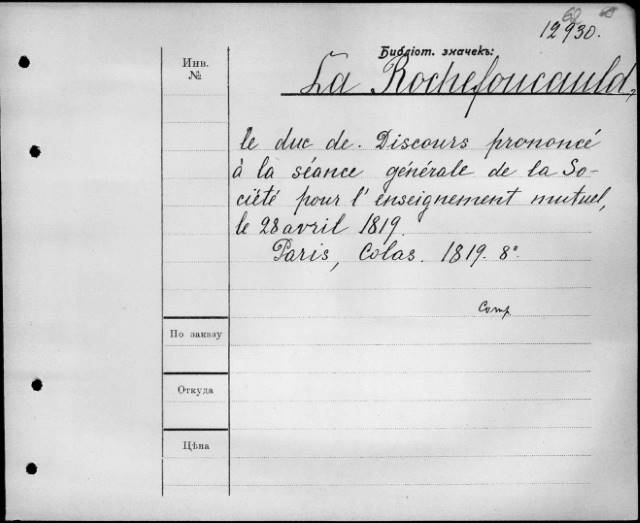 12930.
Библіот. значекъ:
Инв.
№
La Rochefoucauld,
le duc de. Discours prononcé
à la séance générale de la So-
ciété pour l'enseignement mutuel,
le 28 avril 1819.
Paris, Colas. 1819. 8°.
Comp
По заказу
Откуда
Цѣна